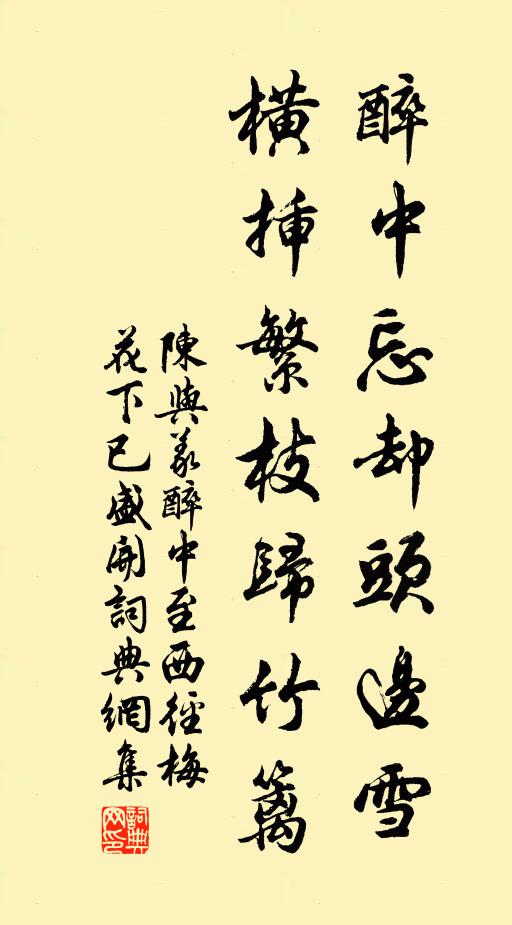 醉中忘却頭邊雪
橫挿繁枝歸竹籬
陳與義醉中至西徑梅
花下已盛開詞典網集
詞典網印